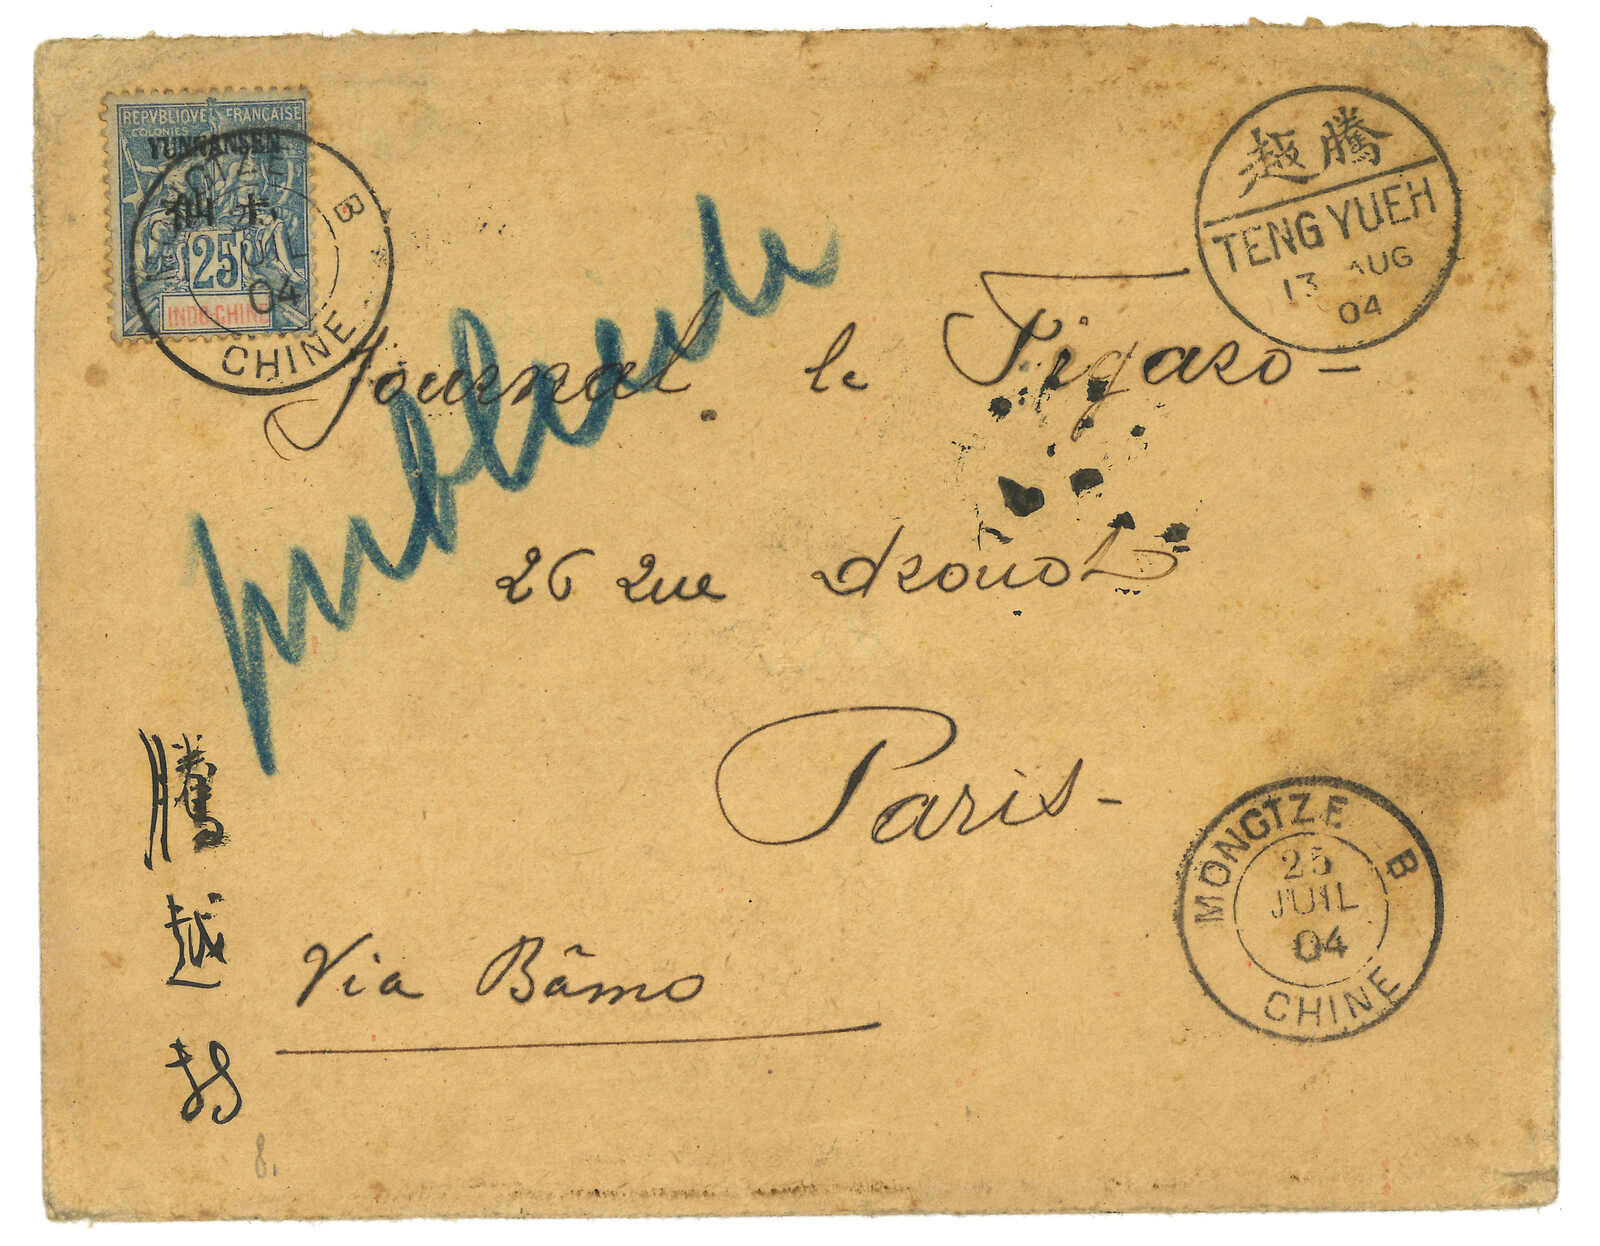 REPVBLIQVE FRANÇAISE
COLONIES
YUNNANSEN
25
INDO-CHINE
MONGTZE B
JUIL
04
CHINE
騰越
TENG YUEH
13 AUG
04
Journal le Figaro -
26 rue drouot
Paris -
騰越
Via Bâmo
MONGTZE B
25
JUIL
04
CHINE
8.